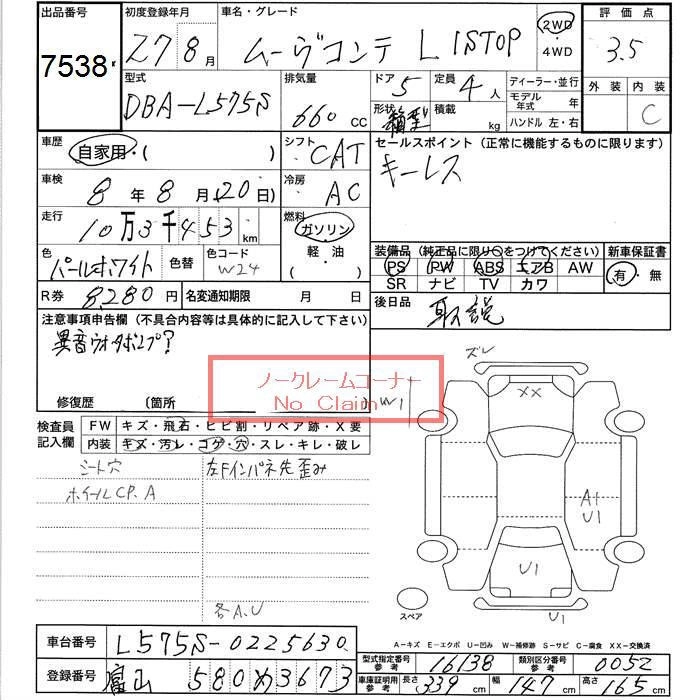 出品番号 初度登録年月 車名・グレード 評価点
7538 27 8月 ムーヴコンテ L ISTOP 2WD・4WD 3.5
型式 排気量 ドア 定員 ディーラー・並行 外装 内装
DBA-L575S 660 CC 5 4人 モデル年式 年 C
形状 箱型 積載 kg ハンドル 左・右
車歴 自家用・( ) シフト CAT セールスポイント(正常に機能するものに限ります)
キーレス
車検 8年 8月(20日) 冷房 AC
走行 10万3千453km 燃料 ガソリン・軽油・( )
色 パールホワイト 色替 色コード W24
装備品(純正品に限り○をつけてください) 新車保証書
PS PW ABS エアB AW 有・無
SR ナビ TV カワ
R券 8,280円 名変通知期限 月 日 後日品 取説
注意事項申告欄(不具合内容等は具体的に記入して下さい)
異音ウォータポンプ?
ズレ
XX
ノークレームコーナー
No Claim
修復歴 〔箇所 W1
検査員記入欄 FW キズ・飛石・ヒビ割・リペア跡・X要
内装 キズ・汚レ・コゲ・穴・スレ・キレ・破レ
シート穴 左Fインパネ先歪み
ホイールCP.A
A1
U1
U1
各A.U
スペア U1
A-キズ E-エクボ U-凹み W-補修跡 S-サビ C-腐食 XX-交換済
車台番号 L575S-0225630
型式指定番号 参考 16138 類別区分番号 参考 0052
登録番号 富山 580 め 3673
車庫証明用 参考 長さ 339cm 幅 147cm 高さ 165cm